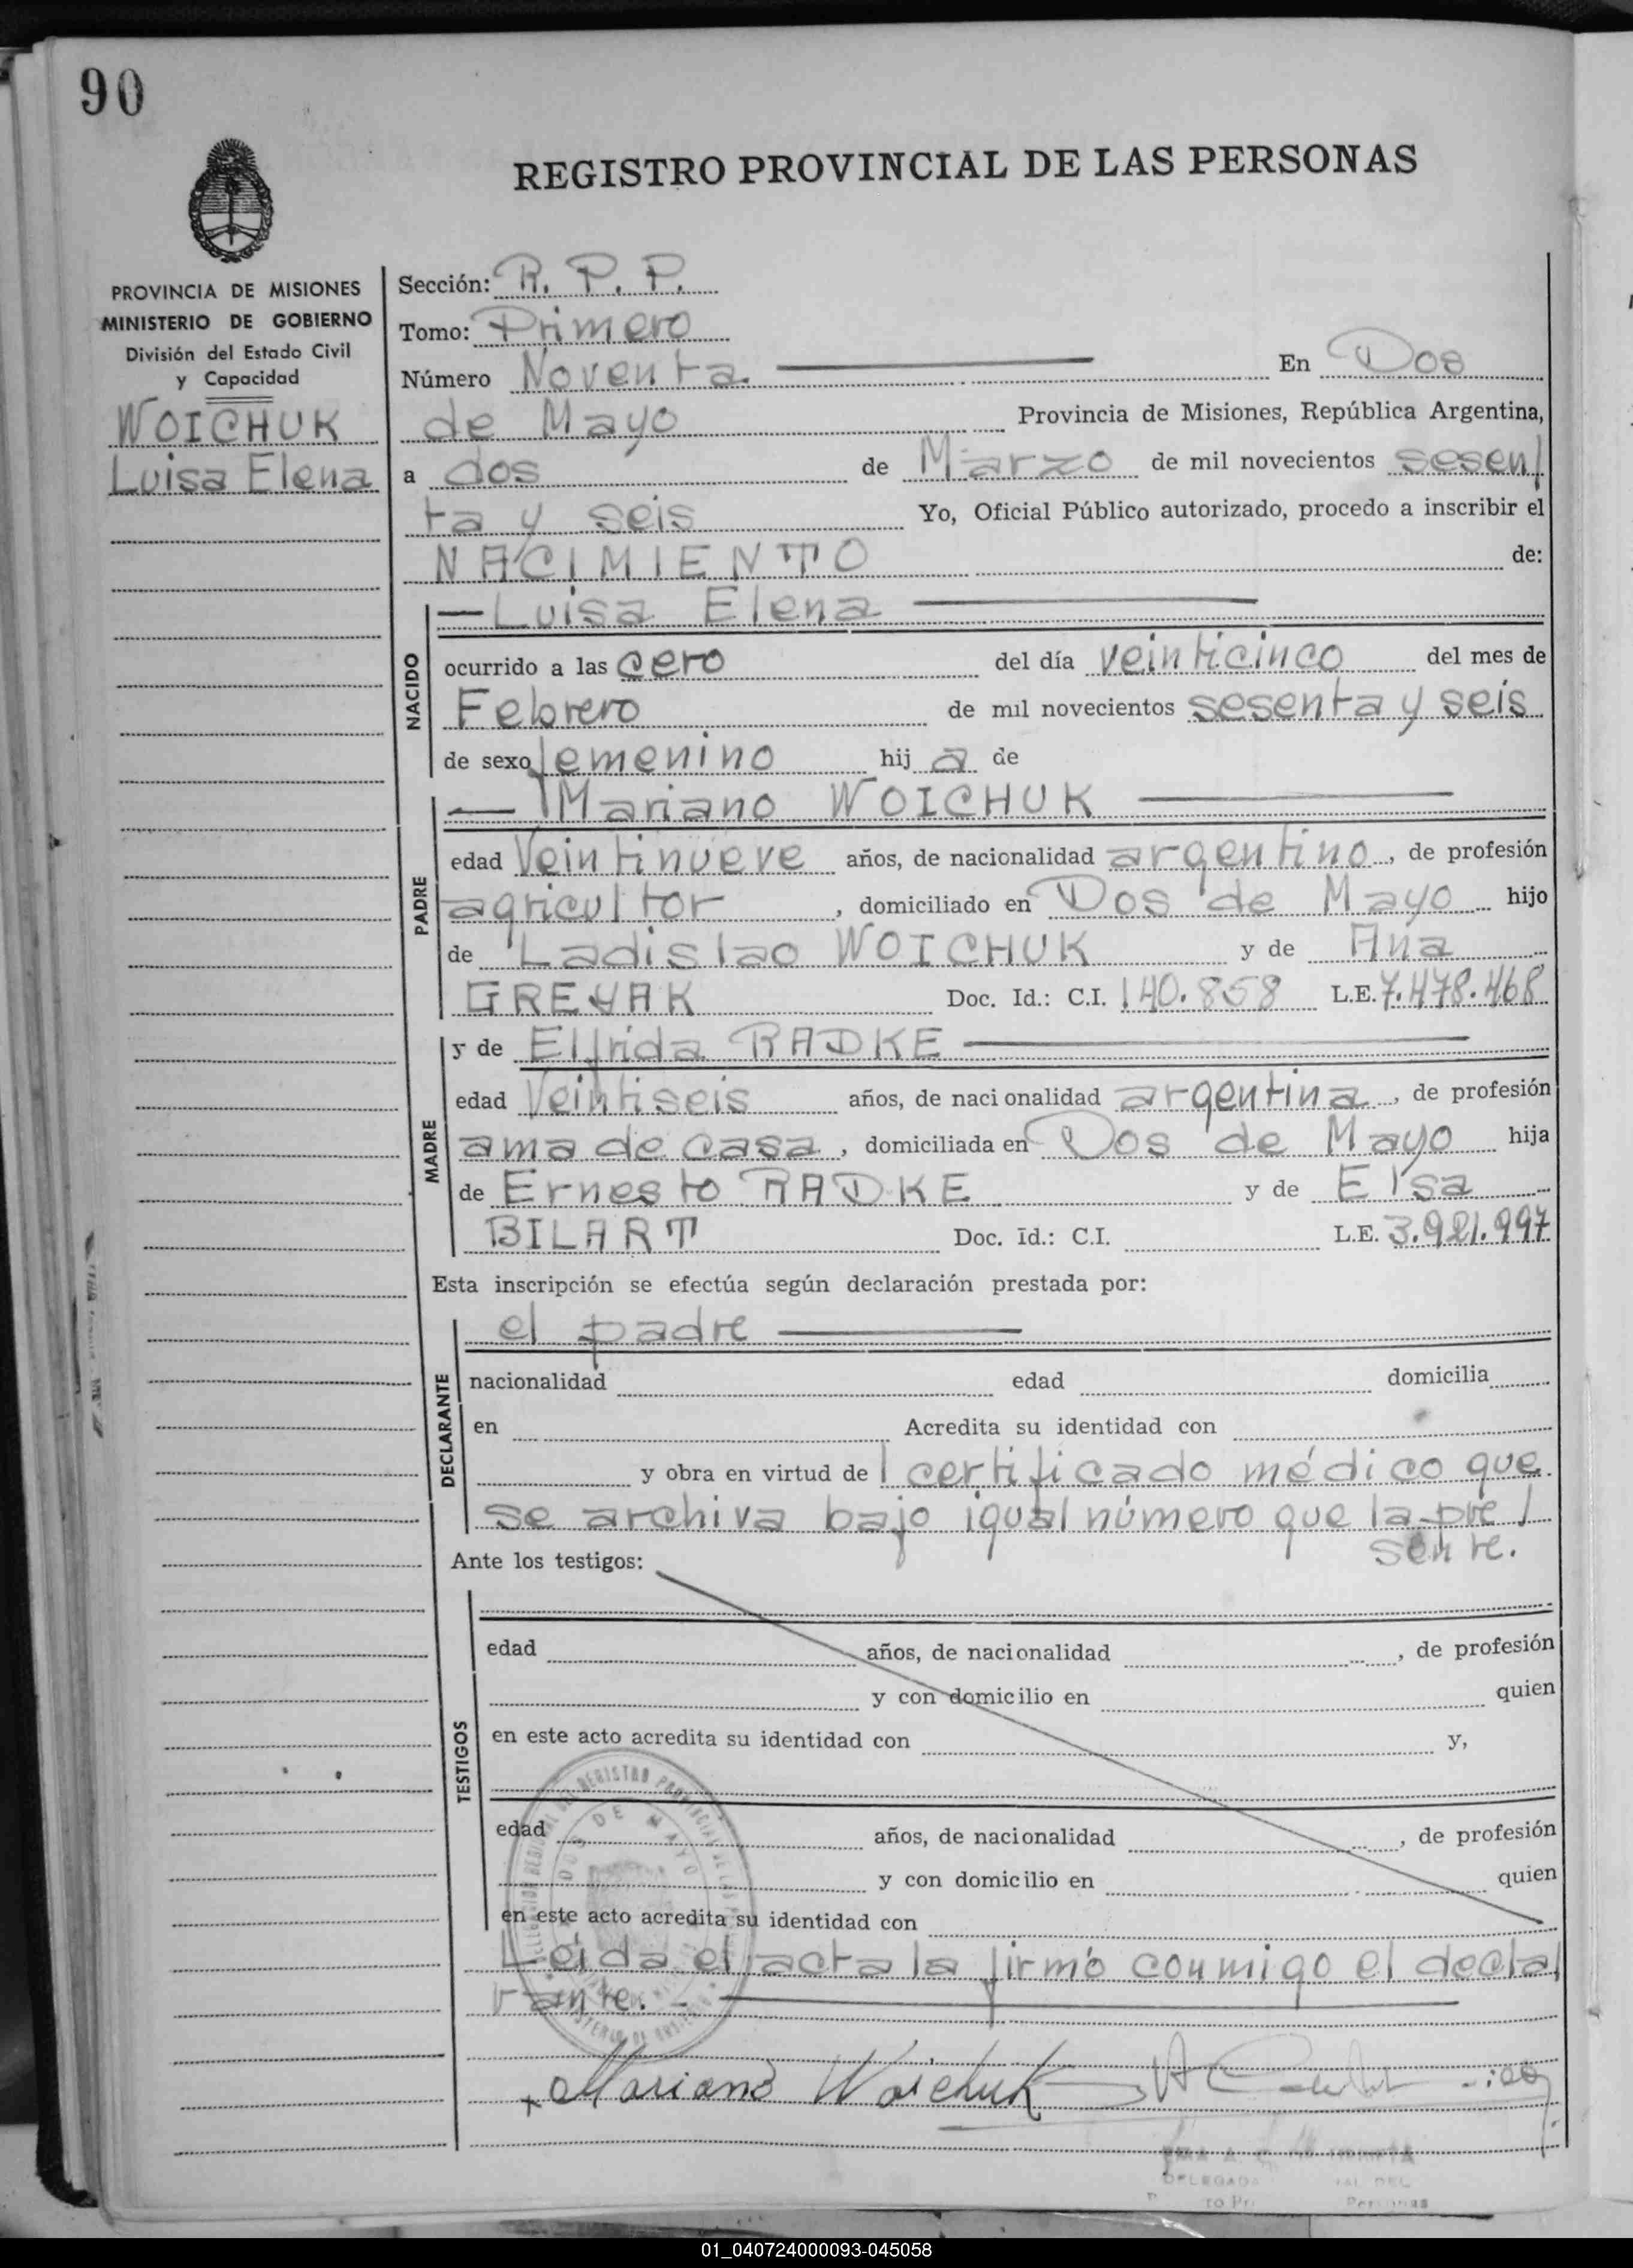 90
REGISTRO PROVINCIAL DE LAS PERSONAS
PROVINCIA DE MISIONES
MINISTERIO DE GOBIERNO
División del Estado Civil
y Capacidad
WOICHUK
Luisa Elena
Sección: R. P. P.
Tomo: Primero
Número Noventa. En Dos
de Mayo Provincia de Misiones, República Argentina,
a dos de Marzo de mil novecientos sesen/
ta y seis Yo, Oficial Público autorizado, procedo a inscribir el
NACIMIENTO de:
NACIDO
— Luisa Elena —
ocurrido a las cero del día veinticinco del mes de
Febrero de mil novecientos sesenta y seis
de sexo femenino hij a de
PADRE
— Mariano WOICHUK —
edad Veintinueve años, de nacionalidad argentino, de profesión
agricultor, domiciliado en Dos de Mayo hijo
de Ladislao WOICHUK y de Ana
GREYAK Doc. Id.: C.I. 140.858 L.E. 7.478.468
MADRE
y de Elfrida RADKE —
edad Veintiseis años, de nacionalidad argentina, de profesión
ama de casa, domiciliada en Dos de Mayo hija
de Ernesto RADKE y de Elsa
BILART Doc. Id.: C.I. L.E. 3.921.997
Esta inscripción se efectúa según declaración prestada por:
DECLARANTE
el padre —
nacionalidad edad domicilia
en Acredita su identidad con
y obra en virtud de l certificado médico que
se archiva bajo igual número que la pre/
sente.
Ante los testigos:
TESTIGOS
edad años, de nacionalidad , de profesión
y con domicilio en quien
en este acto acredita su identidad con y,
edad años, de nacionalidad , de profesión
y con domicilio en quien
en este acto acredita su identidad con
Leída el acta la firmó conmigo el decla/
rante. —
Mariano Woichuk
DOS DE MAYO
01_040724000093-045058